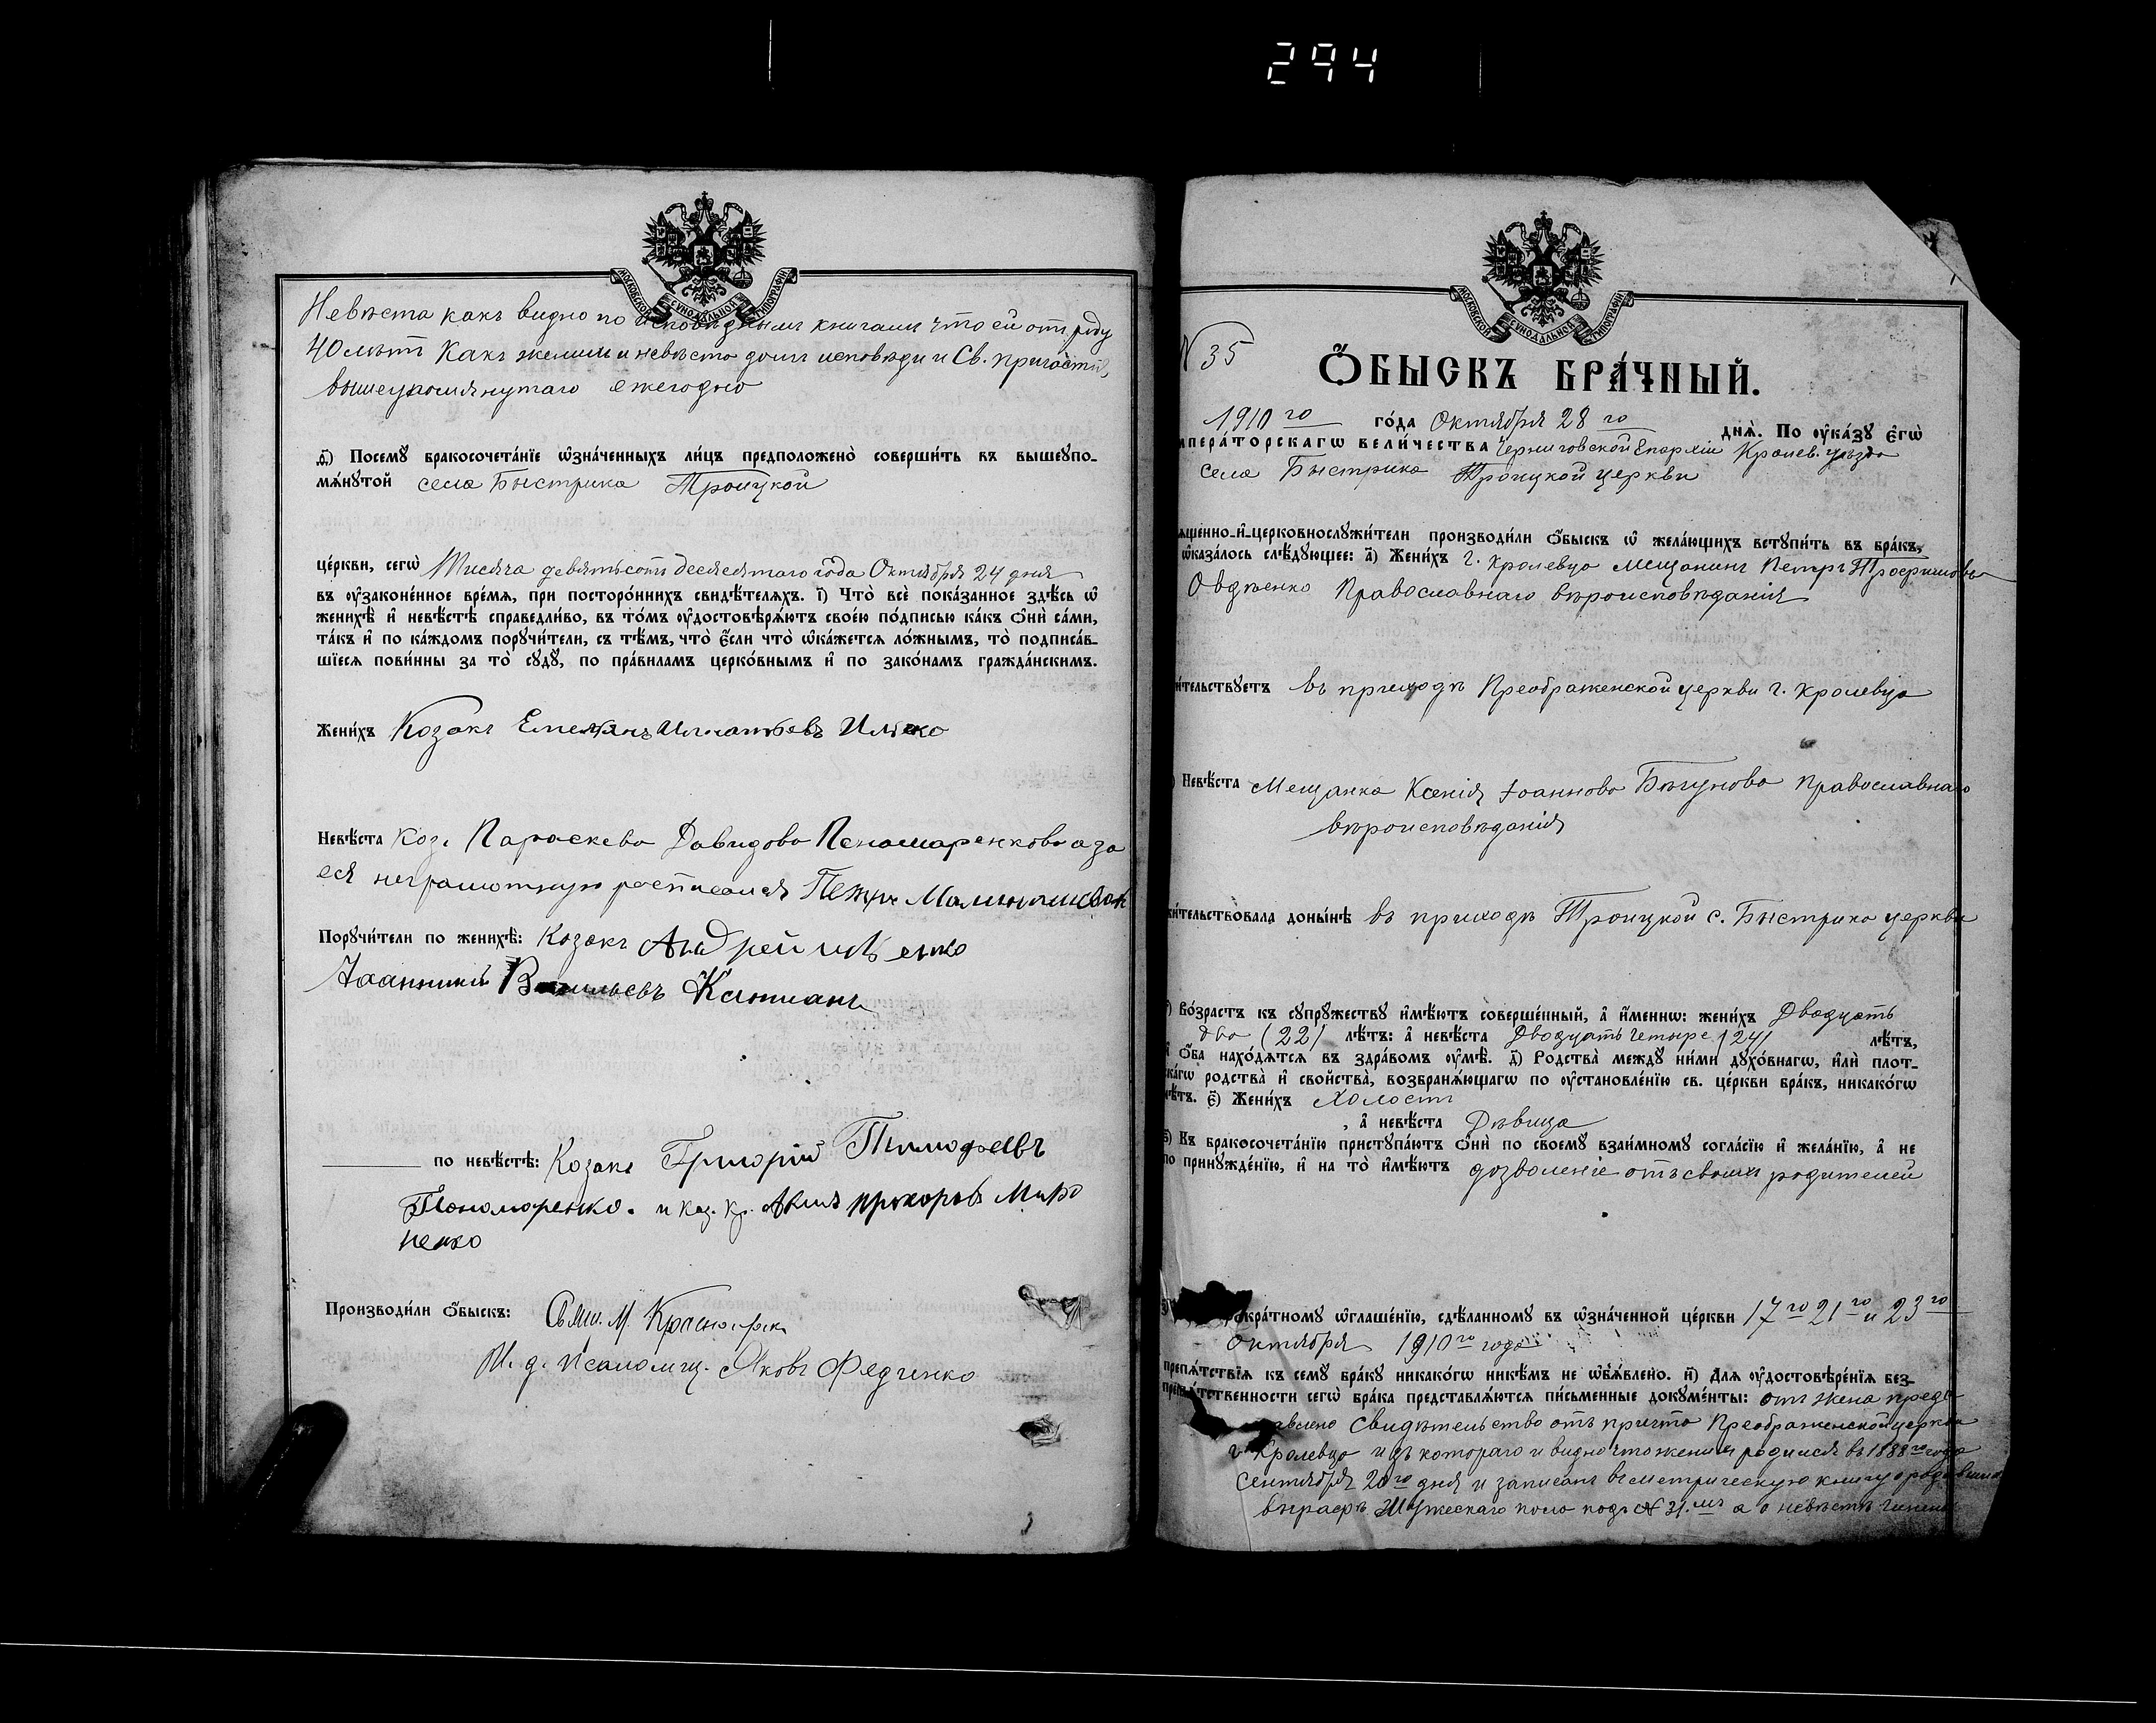 294
МОСКОВСКОЙ СѴНОДАЛЬНОЙ ТИПОГРАФІИ
Невѣста какъ видно по исповѣднымъ книгамъ что ей отъ роду
40 лѣтъ Какъ жених и невѣста долгъ исповѣди и Св. причастія
вышеупомянутаго ежегодно
д҃і) Посемꙋ бракосочета́нїе ѡ҆зна́ченныхъ ли́цъ предположено̀ соверши́ть въ вышеꙋпо-
мѧ́нꙋтой села Быстрика Троицкой
це́ркви, сегѡ̀ Тысяча девятьсотъ десятаго года Октября 24 дня
въ ᲂу҆зако́ненное вре́мѧ, при посторо́ннихъ свидѣ́телѧхъ. і҃) Что̀ всѐ пока́занное здѣ́сь ѡ҆
женихѣ̀ и҆ невѣ́стѣ справедли́во, въ то́мъ ᲂу҆достовѣрѧ́ютъ свое́ю по́дписью ка́къ ѻ҆нѝ са́ми,
та́къ и҆ по ка́ждомъ порꙋчи́тели, съ тѣ́мъ, что̀ є҆́сли что̀ ѡ҆ка́жетсѧ ло́жнымъ, то̀ подписа́в-
шїесѧ пови́нны за то̀ сꙋдꙋ̀, по пра́виламъ церко́внымъ и҆ по зако́намъ гражда́нскимъ.
Жени́хъ Козакъ Емельянъ Игнатьевъ
Невѣ́ста Коз. Параскева Давидова Пономаренкова а за
ея неграмотную росписался Петръ
Порꙋчи́тели по женихѣ̀: Козакъ Андрей
Іоанникій Васильевъ
по невѣ́стѣ: Козакъ Григорій Тимофѣевъ
Пономоренко. и каз. Кр. Акимъ прохоровъ Миро
ненко
Производи́ли ѻ҆́быскъ: Свящ. М.
И. д. псаломщ. Яковъ Федченко
МОСКОВСКОЙ СѴНОДАЛЬНОЙ ТИПОГРАФІИ
N 35
Ѻ҆́БЫСКЪ БРА́ЧНЫЙ.
1910 го го́да Октября 28 го днѧ̀. По ᲂу҆ка́зꙋ є҆гѡ̀
мпера́торскагѡ вели́чества Черниговской Епархіи Кролев. уѣзда
села Быстрика Троицкой церкви
ѧще́нно-и҆-церковнослꙋжи́тели производи́ли ѻ҆́быскъ ѡ҆ жела́ющихъ встꙋпи́ть въ бра́къ,
ѡ҆каза́лось слѣ́дꙋющее: а҃) Жени́хъ г. Кролевца Мещанинъ Петръ Трофимовъ
Овдѣенко Православнаго вѣроисповѣданія
и́тельствꙋетъ въ приходѣ Преображенской церкви г. Кролевца
) Невѣ́ста Мещанка Ксенія Іоаннова Бѣгунова Православнаго
вѣроисповѣданія
жи́тельствовала доны́нѣ въ приходѣ Троицкой с. Быстрика церкви
) Во́зрастъ къ сꙋпрꙋ́жествꙋ и҆мѣ́ютъ соверше́нный, а҆ и҆́меннѡ: жени́хъ Двадцать
два (22) лѣ́тъ: а҆ невѣ́ста Двадцать четыре (24) лѣ́тъ,
и҆ ѻ҆́ба нахо́дѧтсѧ въ здра́вомъ ᲂу҆мѣ̀. д҃) Родства̀ междꙋ̀ ни́ми дꙋхо́внагѡ, и҆лѝ плот-
ска́гѡ родства̀ и҆ сво́йства̀, возбранѧ́ющагѡ по ᲂу҆становле́нїю св. це́ркви бра́къ, никако́гѡ
нѣ́тъ. є҃) Жени́хъ Холостъ
, а҆ невѣ́ста Дѣвица
ѕ҃) Къ бракосочета́нїю пристꙋпа́ютъ ѻ҆нѝ по своемꙋ̀ взаи́мномꙋ согла́сїю и҆ жела́нїю, а҆ не
по принꙋжде́нїю, и҆ на то̀ и҆мѣ́ютъ дозволеніе отъ своихъ родителей
окра́тномꙋ ѡ҆глаше́нїю, сдѣ́ланномꙋ въ ѡ҆зна́ченной це́ркви 17 го 21 го и 23 го
Октября 1910 го года
препѧ́тствїѧ къ семꙋ̀ бра́кꙋ никако́гѡ никѣ́мъ не ѡ҆б̾ѧ́влено. и҃) Для ᲂу҆достовѣре́нїѧ без-
препѧ́тственности сегѡ̀ бра́ка представлѧ́ютсѧ пи́сьменные докꙋме́нты: отъ жена предс
авлено Свидѣтельство отъ причта Преображенской церкви
г. Кролевца изъ котораго и видно что женихъ родился въ 1888 го года
Сентября 20 го дня и записанъ въ метрическую книгу о родившихъ
въ графѣ Мужескаго пола подъ № 31. мъ а о невѣстѣ